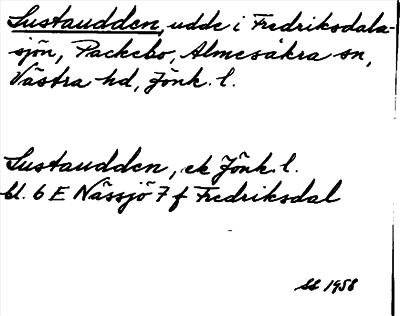 Sustaudden, udde i Fredriksdala-
sjön, Packebo, Almesåkra sn,
Västra hd, Jönk. l.
Sustaudden, ek Jönk. l.
bl. 6 E Nässjö 7 f Fredriksdal
1958